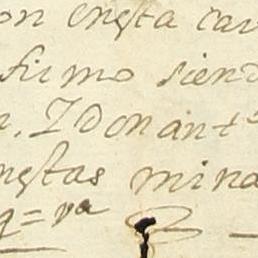 on en esta car
firmo siend
n. Y Don ant.º
nestas mina
q = va